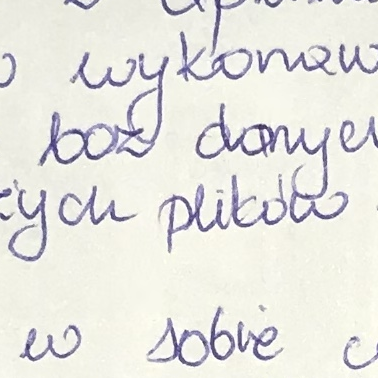 wykonaw
baz danych
ych plików
w sobie